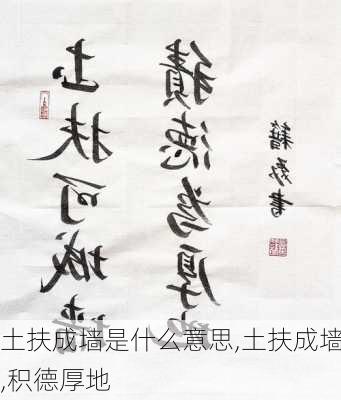 土扶可城墙
積德为厚地
書
土扶成墙是什么意思,土扶成墙
,积德厚地